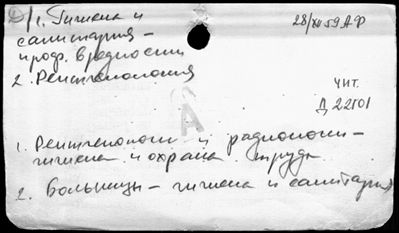 1. Гигиена и
28/XII 59 АФ
санитария -
проф. вредности
2. Рентгенология
ЧИТ.
Д 22101
А
1. Рентгенологи и радиологи -
гигиена и охрана труда
2. Больницы - гигиена и санитария